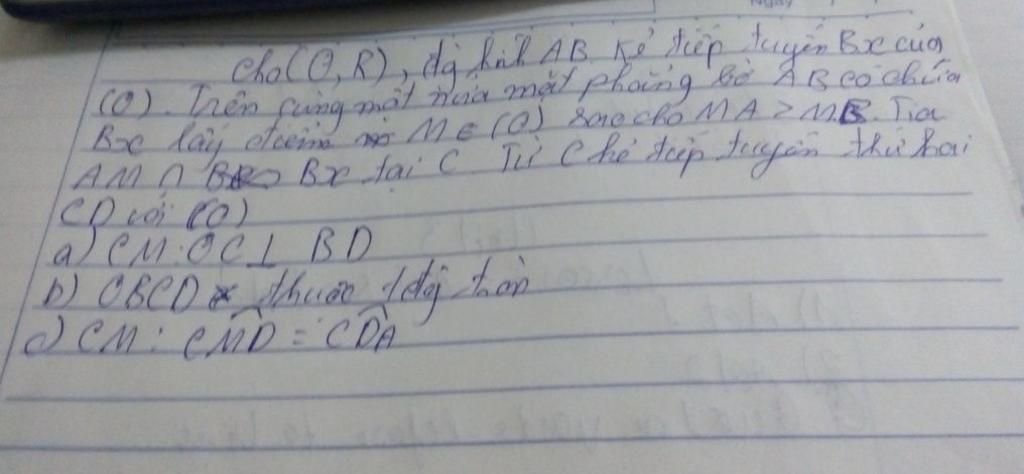 Cho (O, R), đg kính AB. Kẻ tiếp tuyến Bx của
(O). Trên cùng một nửa mặt phẳng bờ AB có chứa
Bx lấy điểm M ∈ (O) sao cho MA > MB. Tia
AM ∩ Bx tại C Từ C kẻ tiếp tuyến thứ hai
CD với (O)
a) CM: OC ⊥ BD
b) OBCD thuộc 1 đg tròn
c) CM: \widehat{CMD} = \widehat{CDA}